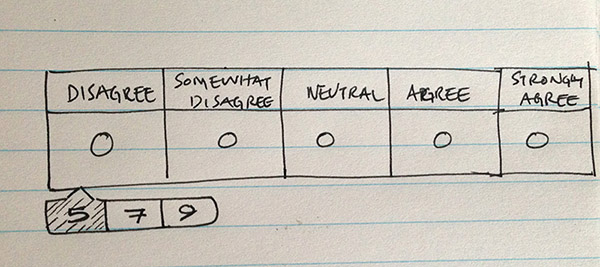 DISAGREE
SOMEWHAT
DISAGREE
NEUTRAL
AGREE
STRONGLY
AGREE
5 7 9